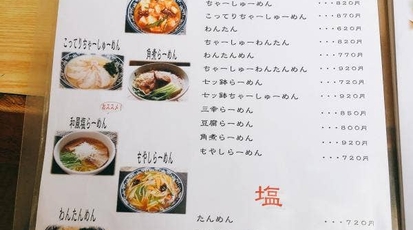 ちゃーしゅーめん ・・・820円
こってりちゃーしゅーめん ・・・870円
わんたん ・・・620円
ちゃーしゅーわんたん ・・・820円
わんたんめん ・・・770円
ちゃーしゅーわんたんめん ・・・920円
七ッ鉢らーめん ・・・720円
七ッ鉢ちゃーしゅーめん ・・・920円
三幸らーめん ・・・850円
豆腐らーめん ・・・800円
角煮らーめん ・・・920円
もやしらーめん ・・・720円
塩
たんめん ・・・720円
こってりちゃーしゅーめん
角煮らーめん
(おススメ!)
和風塩らーめん
もやしらーめん
わんたんめん